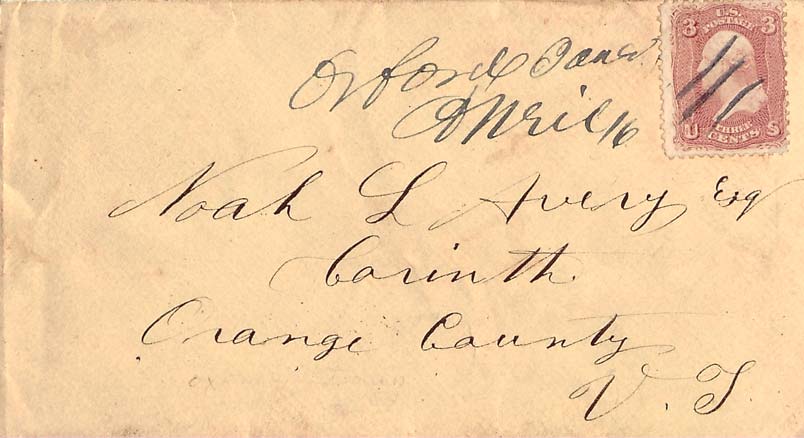 Oxford
April 16
U.S.
POSTAGE
3 3
U THREE S
CENTS
Noah L Avery Esq
Corinth
Orange County
V. T.